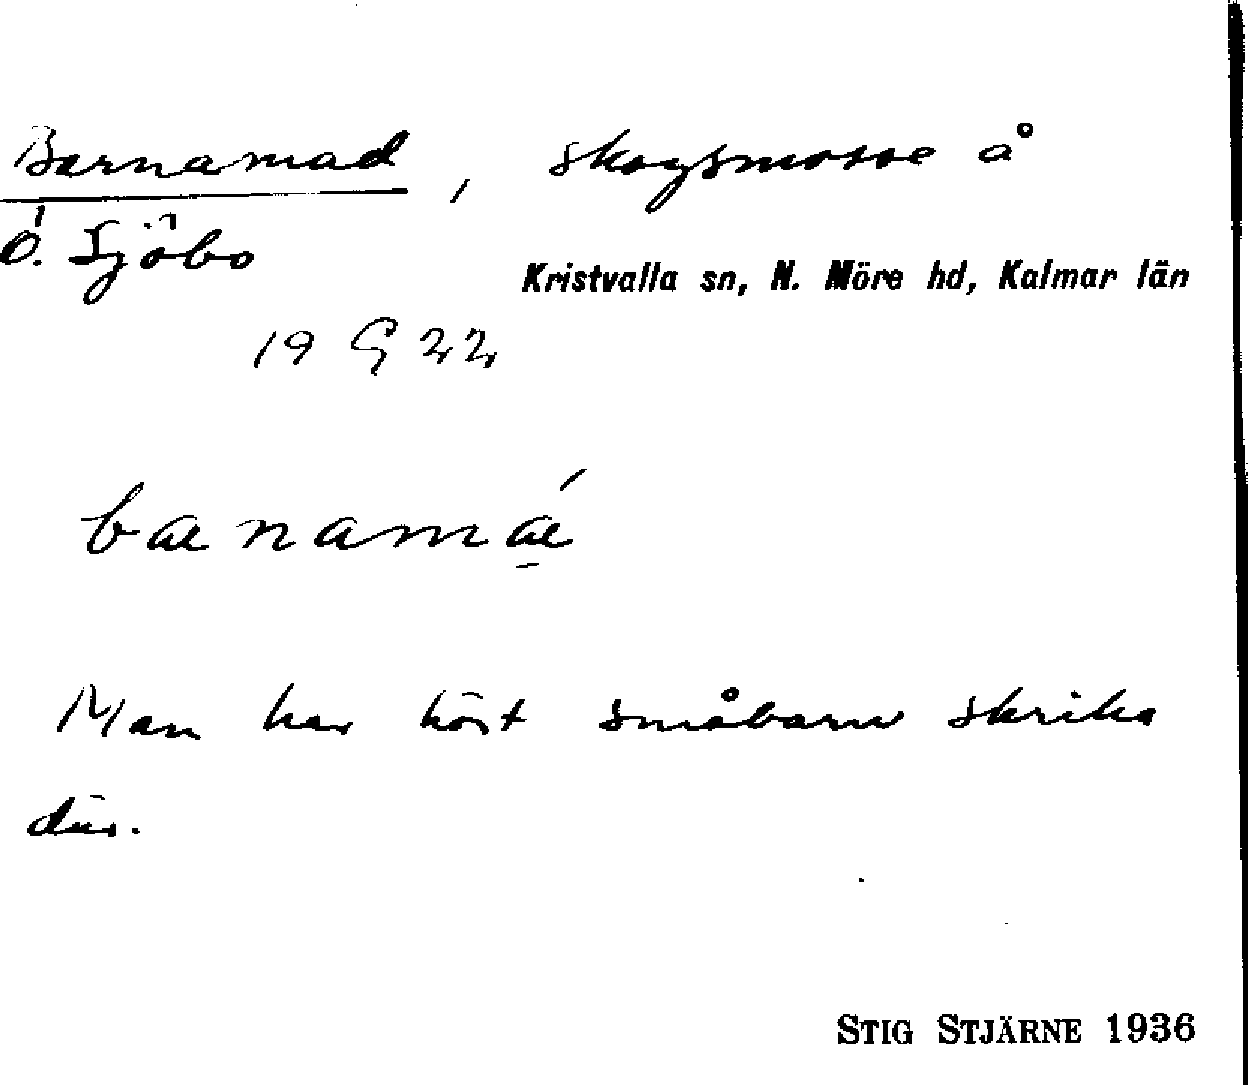 Barnamad, skogsmosse å
Ö. Sjöbo
Kristvalla sn, N. Möre hd, Kalmar län
19 G 22
banamá
Man har hört småbarn skrika
där.
STIG STJÄRNE 1936